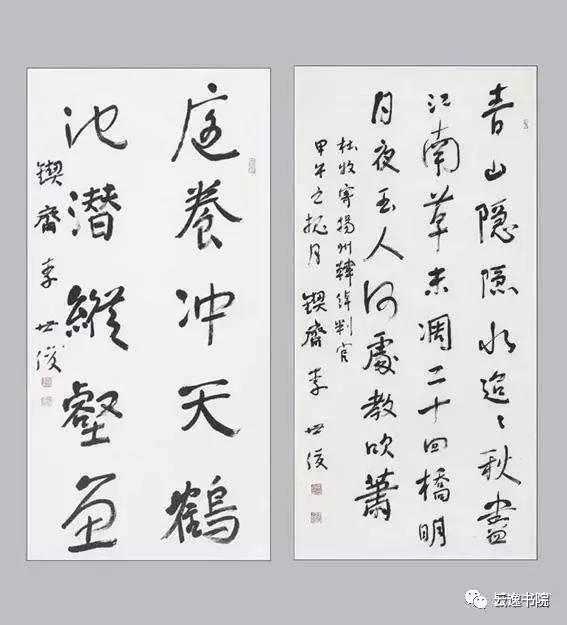 青山隐隐水迢迢秋盡
江南草未凋二十四橋明
月夜玉人何處教吹簫
杜牧寄揚州韓綽判官
甲午之桃月 鍥齋 李世俊
庭養冲天鶴
池潜縱壑魚
鍥齋 李世俊
云逸书院